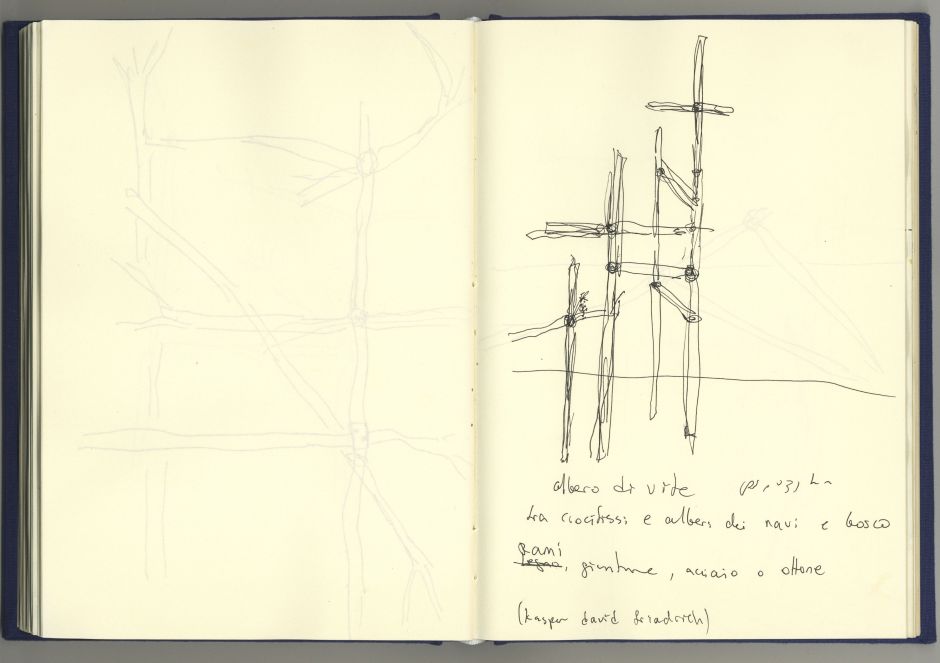 albero di vite
tra crocifissi e alberi dei navi e bosco
rami
legno, giunture, acciaio o ottone
(Kasper david friadrich)